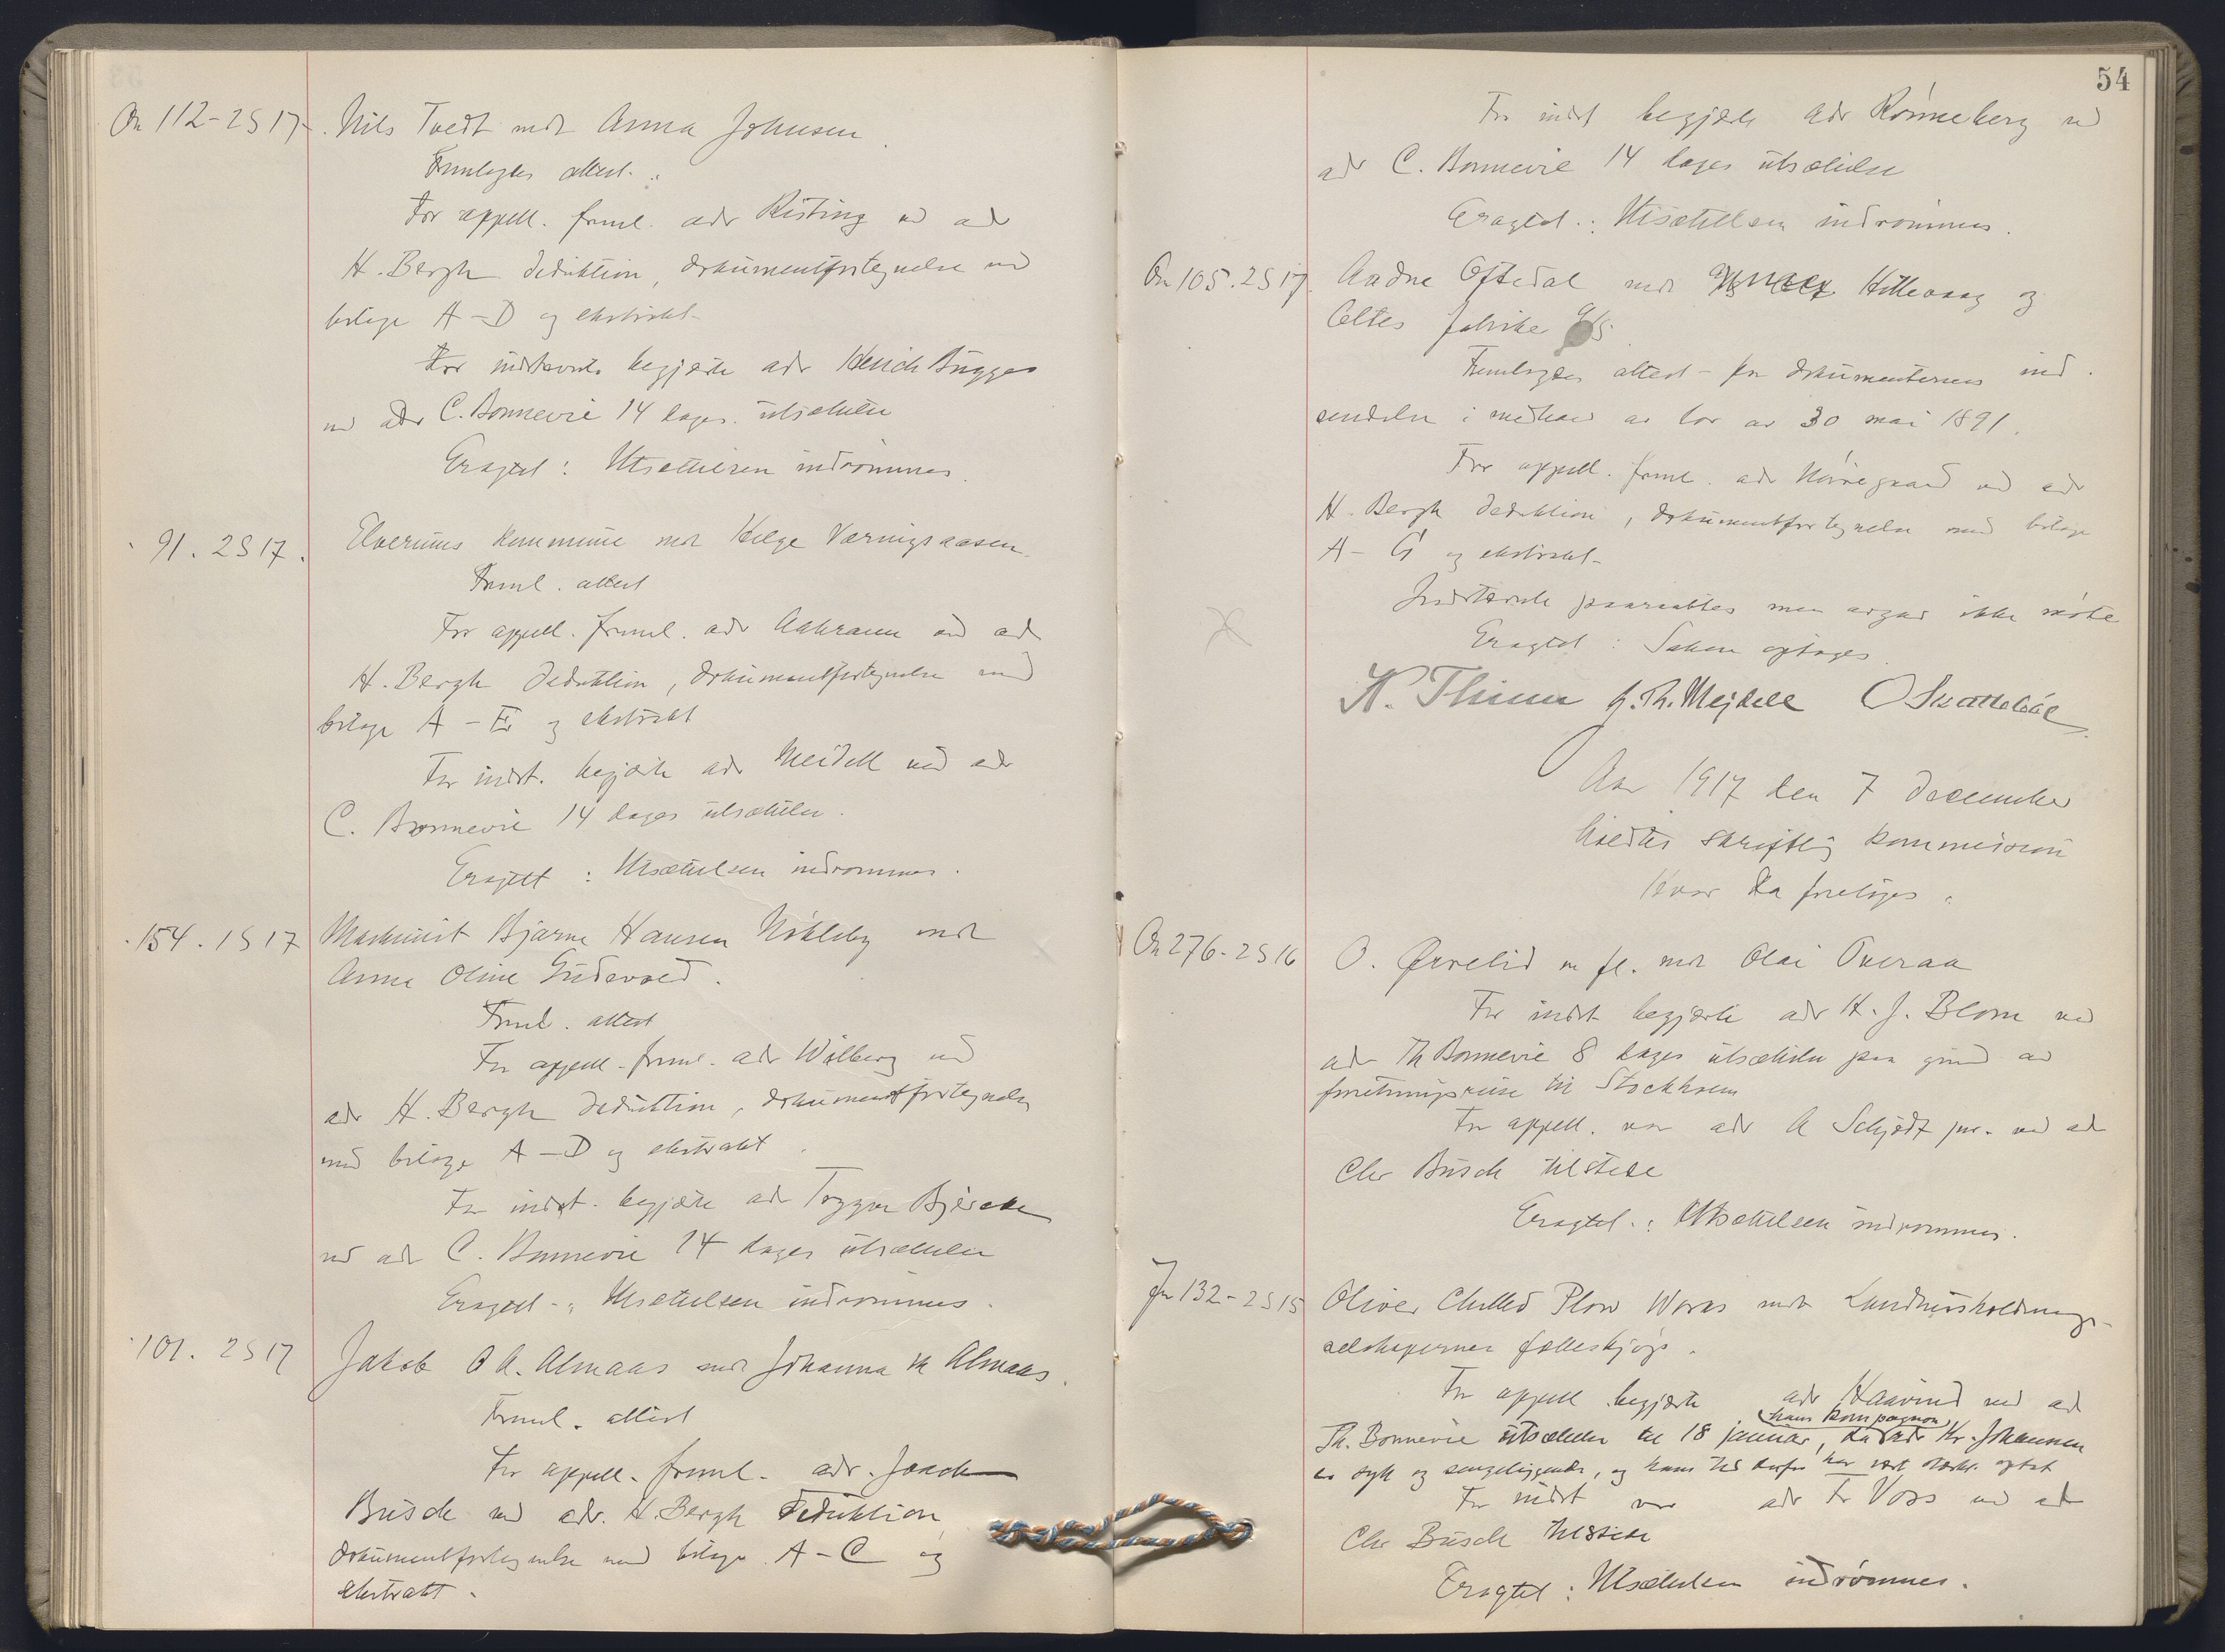 On 112-2 S 17. Nils Tvedt mot Anna Johnsen.
Fremlagdes attest.
For appell. freml. adv Risting ved adv
H. Bergh deduktion, dokumentfortegnelse med
bilage A-D og ekstrakt
For indstevnte begjærte adv Henrich Bugge
ved adv C. Bonnevie 14 dages utsættelse
Eragtet: Utsættelsen indrømmes.
91. 2 S 17. Elverums kommune mot Helge Væringsaasen.
Freml. attest
For appell. freml. adv Aakrann ved adv
H. Bergh deduktion, dokumentfortegnelse med
bilage A-E og ekstrakt
For indst. begjærte adv Meidell ved adv
C. Bonnevie 14 dages utsættelse.
Eragtet: Utsættelsen indrømmes.
154. 1 S 17 Maskinist Bjarne Hansen Nøkleby mot
Anna Oline
Freml. attest
For appell. freml. adv Wålberg ved
adv H. Bergh deduktion, dokumentfortegnelse
med bilage A-D og ekstrakt.
For indst. begjærte adv Trygve Bjerche
ved adv C. Bonnevie 14 dages utsættelse
Eragtet: Utsættelsen indrømmes.
101. 2 S 17 Jakob O A. Almaas mot Johanna M Almaas.
Freml. attest
For appell. freml. adv.
Busch ved adv. H. Bergh deduktion,
dokumentfortegnelse med bilage A-C og
ekstrakt.
54
For indst begjærte adv Rønneberg ved
adv C. Bonnevie 14 dages utsættelse
Eragtet: Utsættelsen indrømmes.
On 105. 2 S 17. Aadne Oftedal mot Hillevaag og
Oltes fabrike A/S.
Fremlagdes attest for dokumenternes ind-
sendelse i medhold av lov av 30 mai 1891.
For appell. freml. adv Nørregaard ved adv
H. Bergh deduktion, dokumentfortegnelse med bilage
A-G og ekstrakt
Indstevnte paaraabtes men avgav ikke møte
Eragtet: Saken optages.
N. Thinn G. Th. Mejdell O Skattebøl
Aar 1917 den 7 december
holdtes skriftlig kommission
Hvor da foretoges:
On 276-2 S 16 O. Ørvelid m fl. mot Olai Overaa
For indst begjærte adv H. J. Blom ved
adv Th Bonnevie 8 dages utsættelse paa grund av
forretningsreise til Stockholm
For appell. var adv A Schjødt jur. ved adv
Chr Busch tilstede
Eragtet: Utsættelsen indrømmes.
Fr 132-2 S 15 Oliver Chilled Plow Works mot Landhusholdnings-
selskapernes fælleskjøp.
For appell begjærte adv Haavind ved adv
(hans kompagnon)
Th. Bonnevie utsættelse til 18 januar, da adv Kr. Johannsen
er syk og sengeliggende, og hans tid derfor har vært stærkt optat
For indst var adv Fr Voss ved adv
Chr Busch tilstede
Eragtet: Utsættelsen indrømmes.